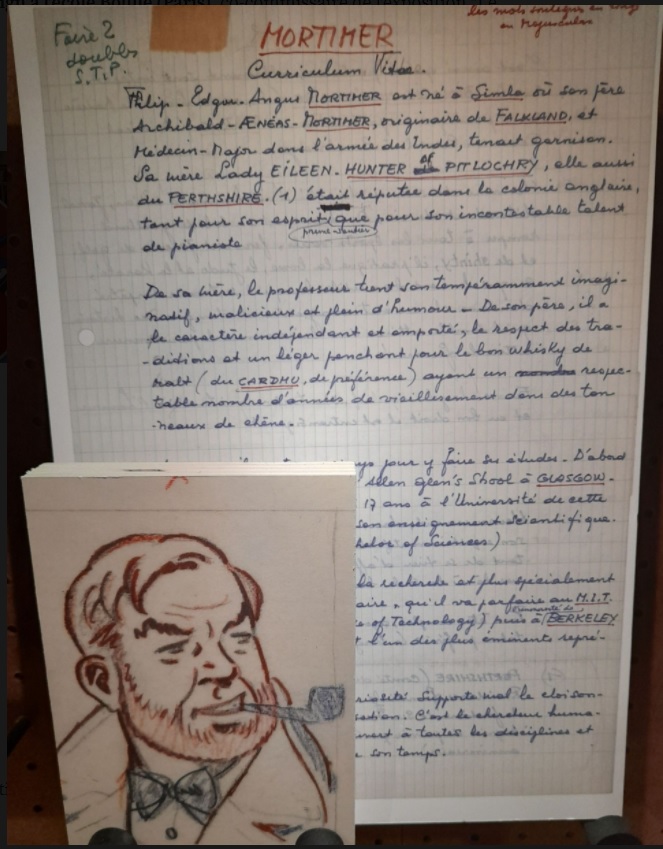 les mots soulignés en rouge
en Majuscules
Faire 2
doubles
S.T.P.
MORTIMER
Curriculum Vitae.
Philip-Edgar-Angus MORTIMER est né à Simla où son père
Archibald-ÆNEAS-MORTIMER, originaire de FALKLAND, et
Médecin-Major dans l'armée des Indes, tenait garnison.
Sa mère Lady EILEEN-HUNTER OF PITLOCHRY, elle aussi
du PERTHSHIRE. (1) était réputée dans la colonie anglaise,
tant pour son esprit que pour son incontestable talent
primesautier
de pianiste
De sa mère, le professeur tient son tempéramment imagi-
natif, malicieux et plein d'humour - De son père, il a
le caractère indépendant et emporté, le respect des tra-
-ditions et un léger penchant pour le bon whisky de
malt (du CARDHU, de préférence) ayant un respec-
table nombre d'années de vieillissement dans des ton
-neaux de chêne.
pour y faire ses études - D'abord
glen's School à GLASGOW.
17 ans à l'Université de cette
son enseignement scientifique.
of Sciences.)
la recherche et plus spécialement
qu'il va parfaire au M.I.T.
of Technology) puis à BERKELEY
l'un des plus éminents repré-
supporte mal le cloison-
C'est le chercheur huma-
à toutes les disciplines et
son temps.